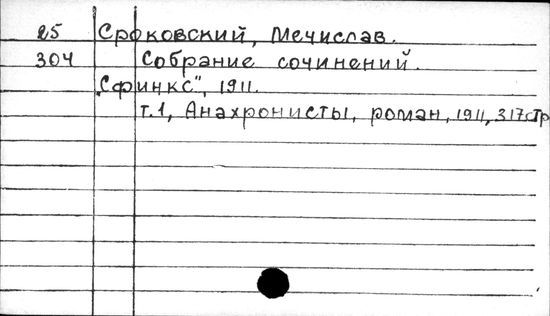 25 Сроковский, Мечислав.
304 Собрание сочинений.
„Сфинкс", 1911.
т.1, Анахронисты, роман, 1911, 317стр